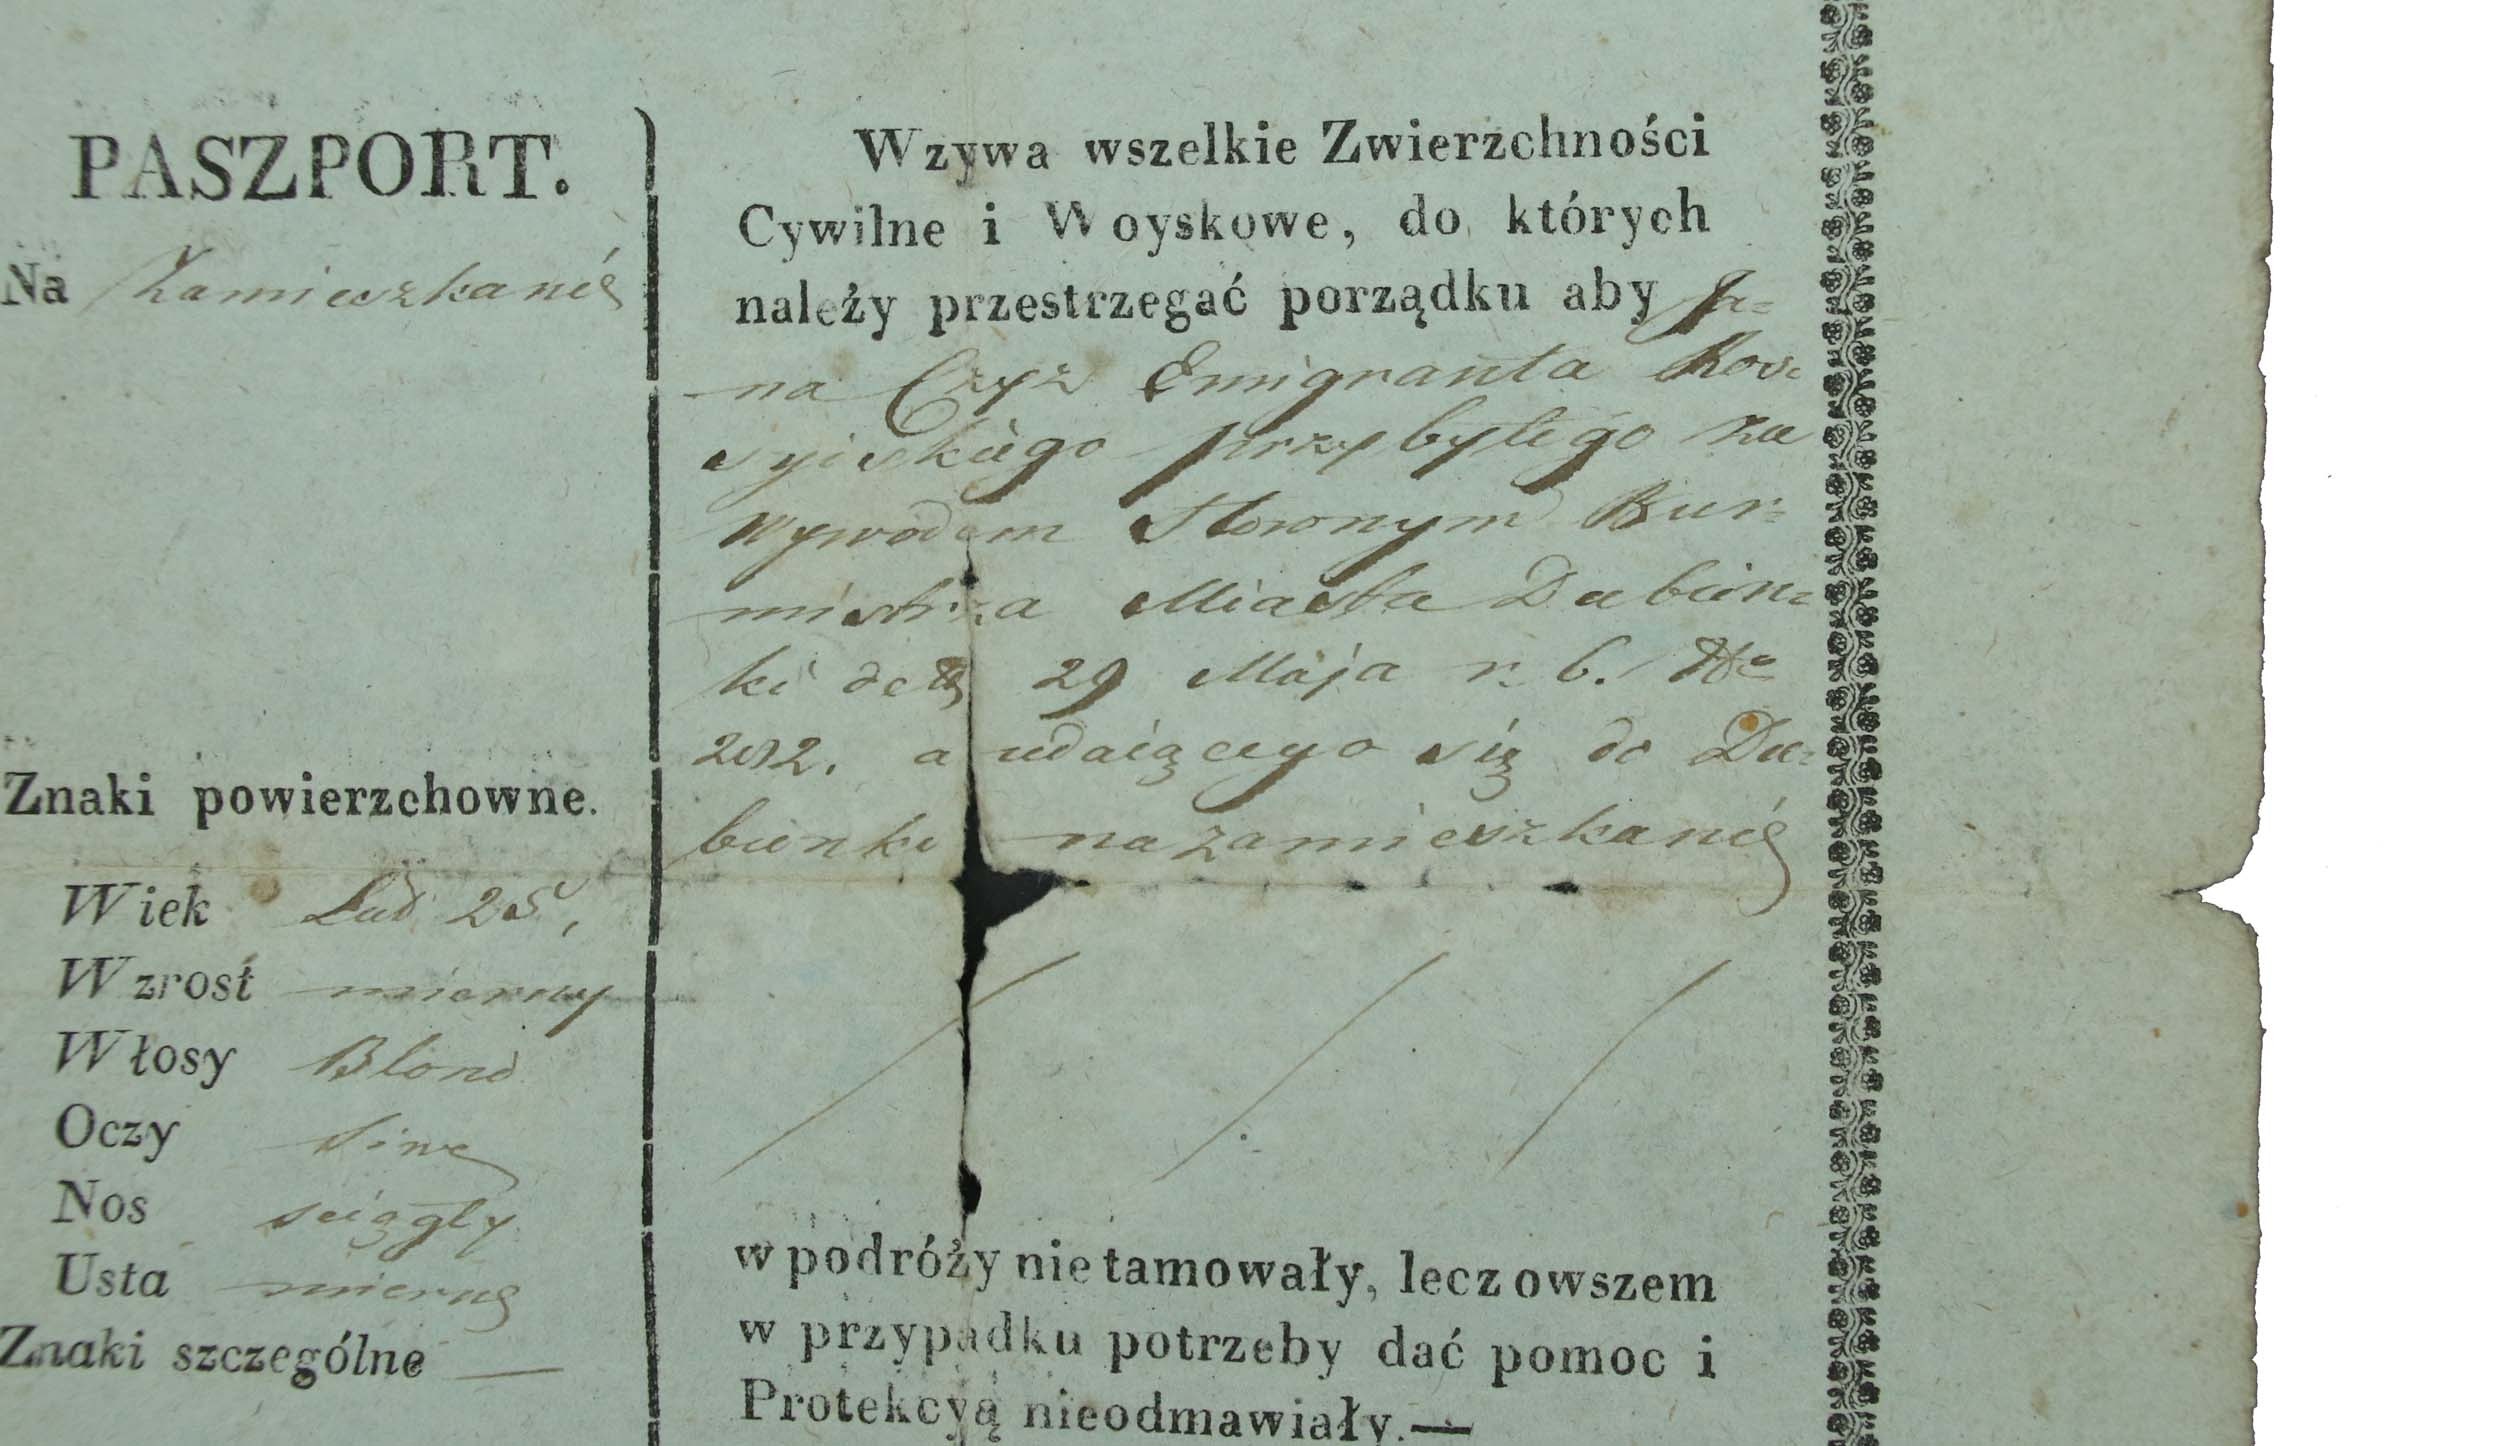 PASZPORT.
Na Zamieszkanie
Znaki powierzchowne.
Wiek Lat 25,
Wzrost mierny
Włosy Blond
Oczy siwe
Nos sciągły
Usta mierne
Znaki szczególne —
Wzywa wszelkie Zwierzchności
Cywilne i Woyskowe, do których
należy przestrzegać porządku aby Ja=
na Czyż Emigranta Ros=
syiskiego przybyłego za
Wywodem Słownym Bur=
mistrza Miasta Dubien=
ki 29 Maja r. b. No
a udaiącego się do Du=
bienki na zamieszkanie
w podróży nie tamowały, lecz owszem
w przypadku potrzeby dać pomoc i
Protekcyą nieodmawiały.—